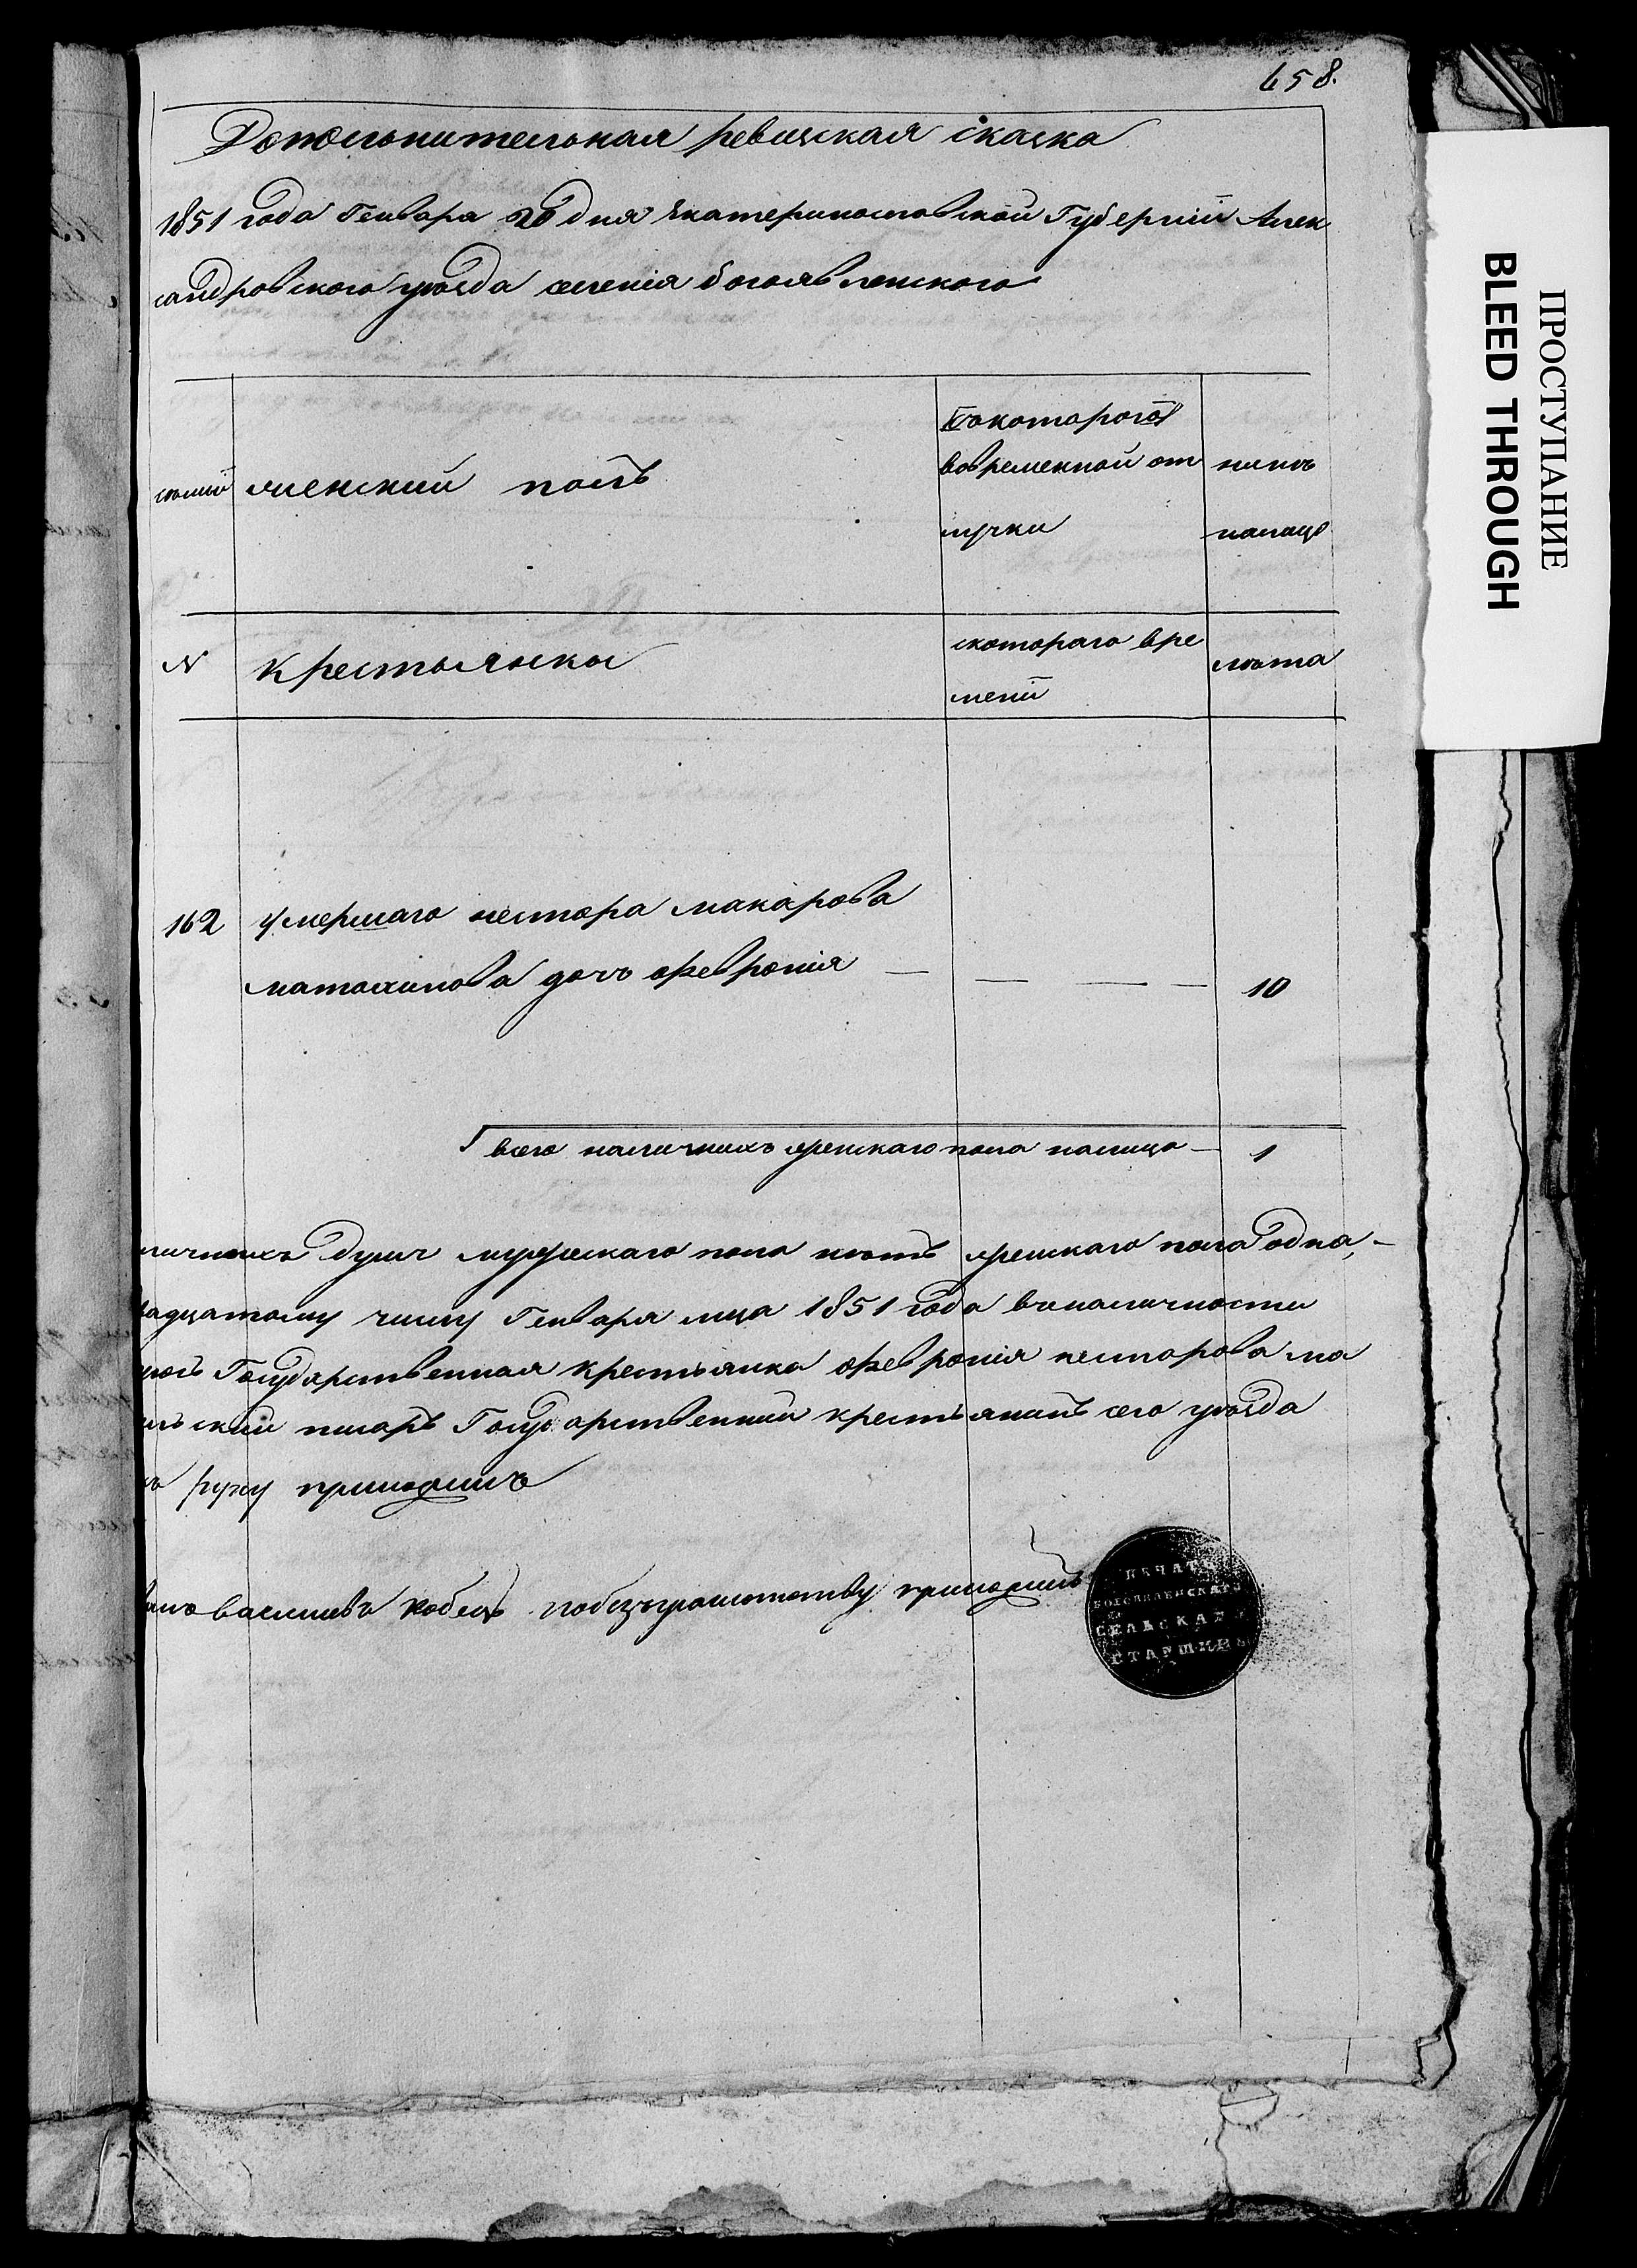 658.
Дополнительная ревизская сказка
1851 года Генваря 20 дня Екатеринославской Губернии Алек
сандровского уѣзда селенія богоявленского
женский полъ
вовременной от
лучки
нынѣ
налицо
N
Крестьянки
скотораго вре
мени
лѣта
162
умершаго нестора макарова
матюхинова дочь февронія — — — —
10
всего наличныхъ женскаго пола налицо —
1
личныхъ душъ мужескаго пола нѣтъ женскаго пола одна, —
адцатому числу Генваря мца 1851 года вналичности
Государственная крестьянка февронія несторова ма
ский писарь Государственний крестьянинъ сего уѣзда
руку приложилъ
василиевъ Кобецъ побезъграмотству приложилъ
ПЕЧАТЬ
БОГОЯВЛЕНСКАГО
СЕЛЬСКАГО
СТАРШИНЫ
ПРОСТУПАНИЕ
BLEED THROUGH